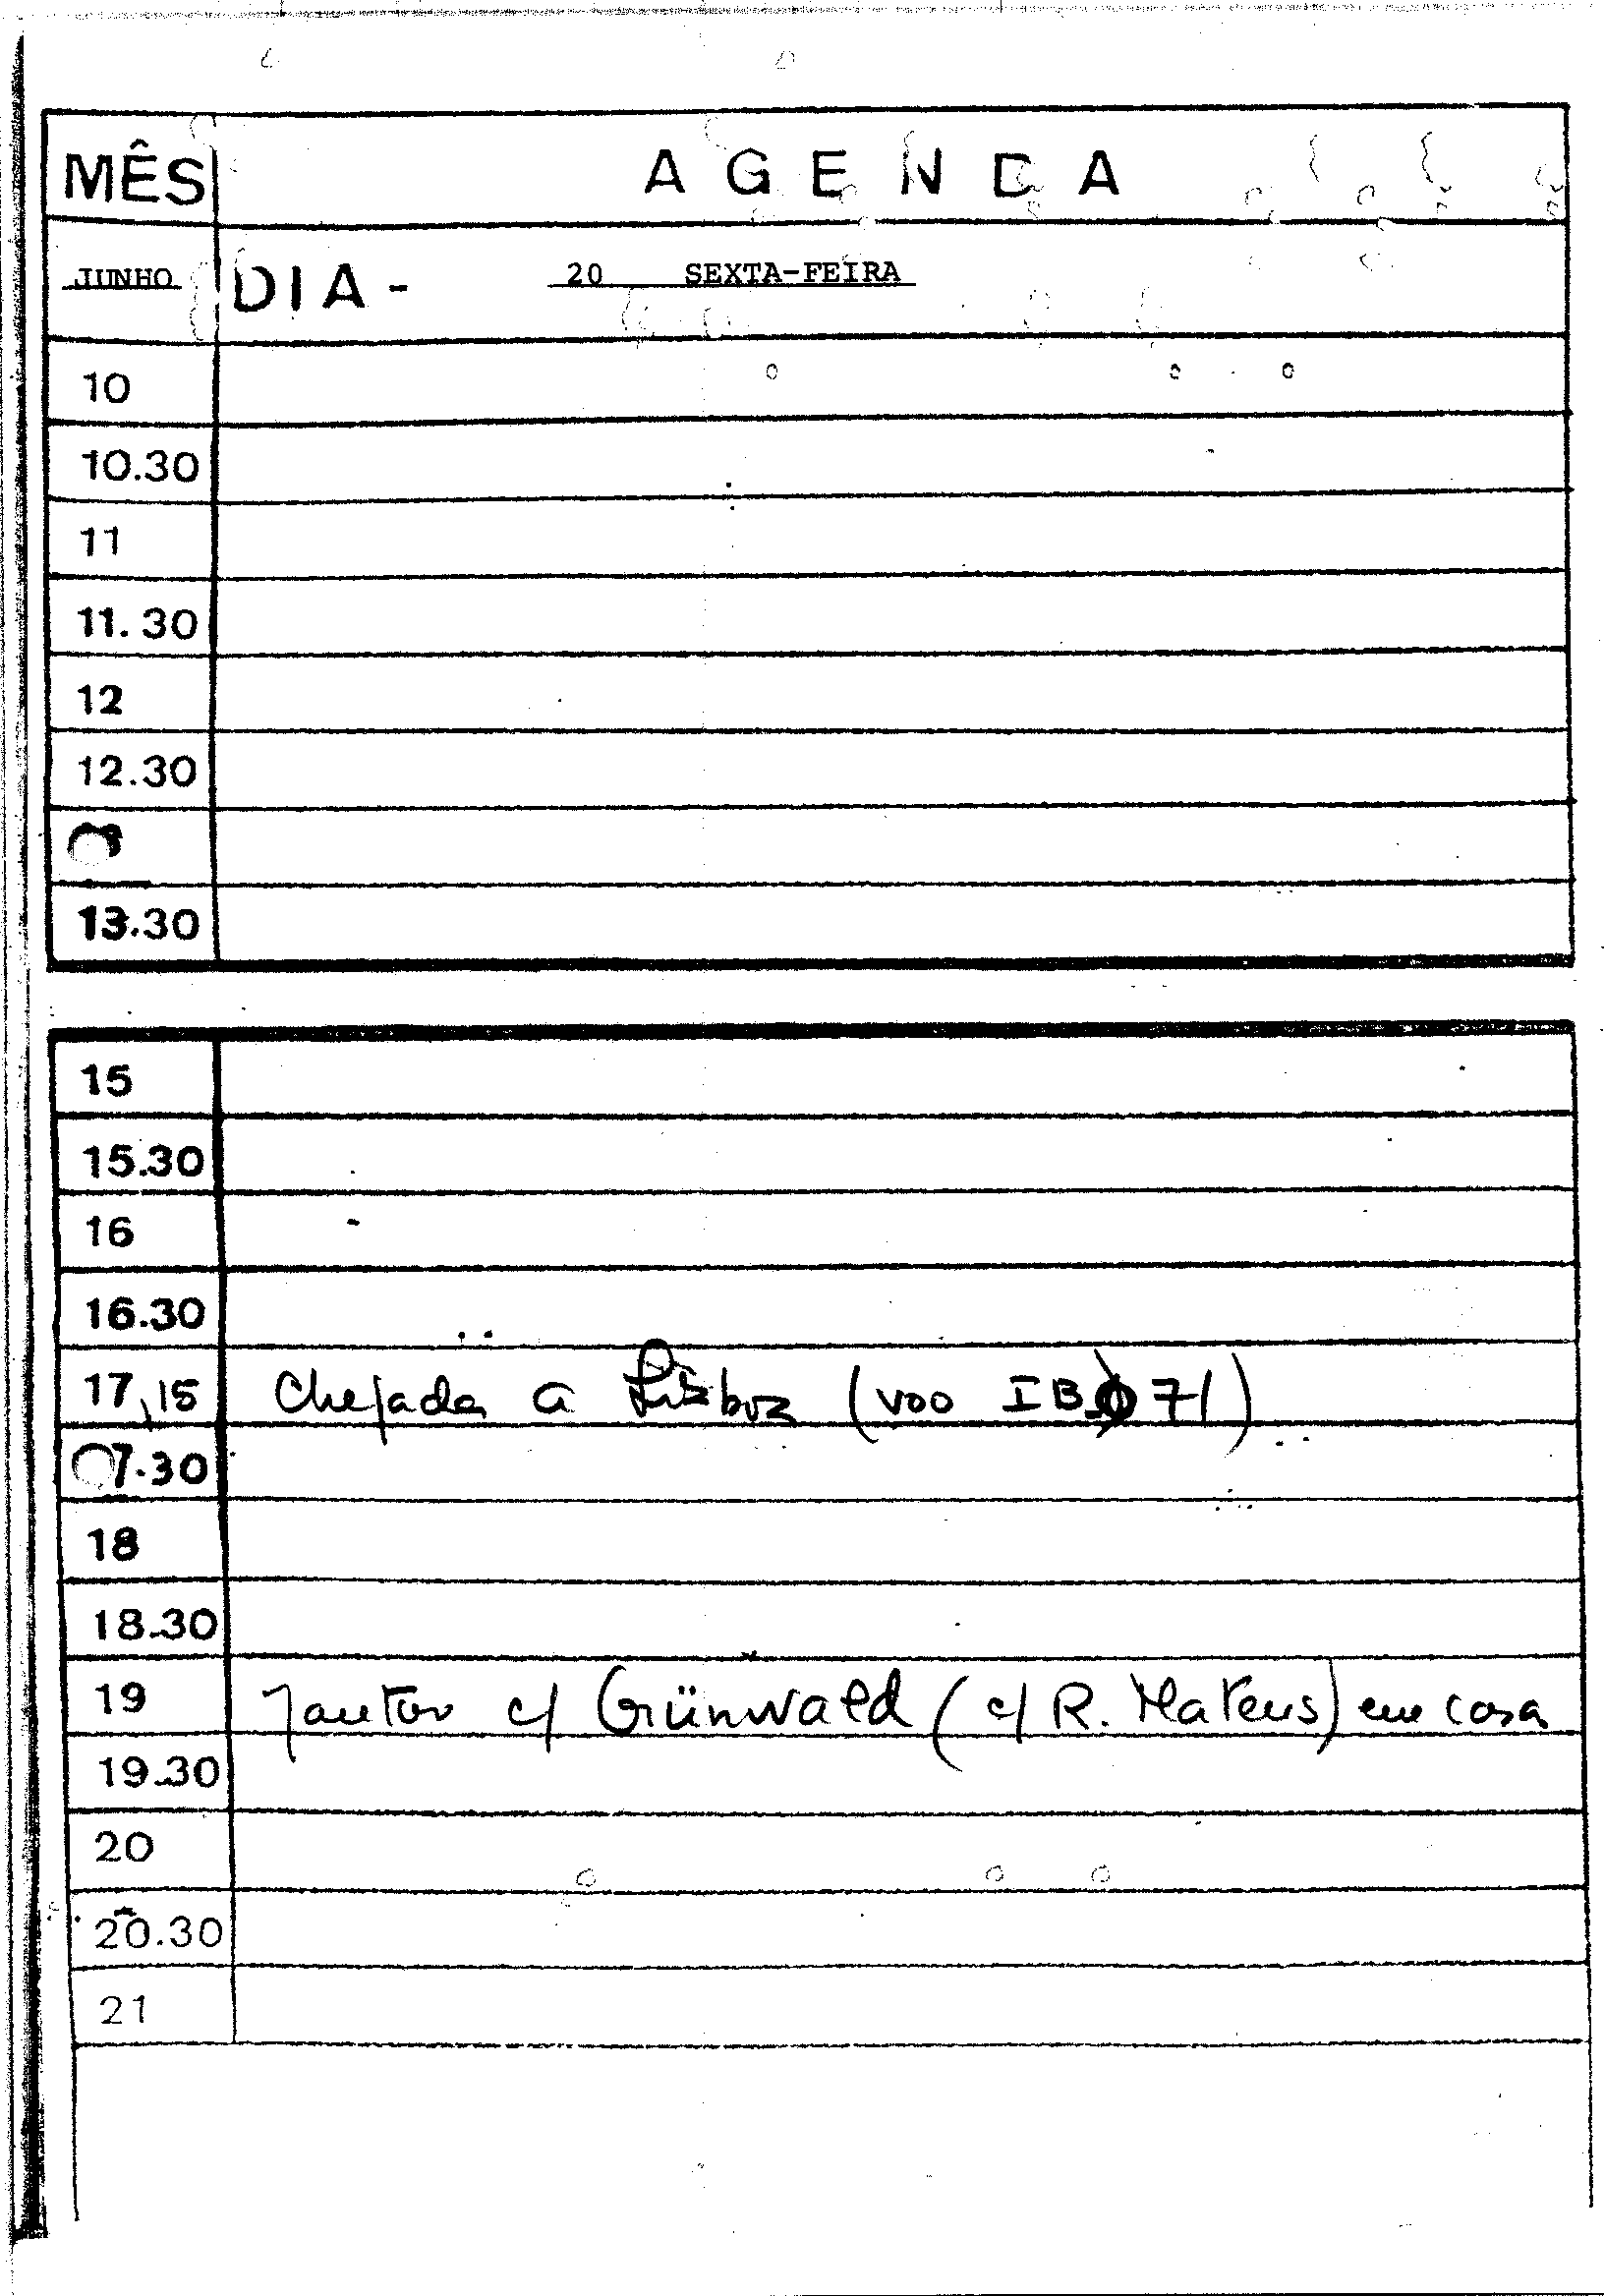 MÊS A G E N D A
JUNHO DIA - 20 SEXTA-FEIRA
10
10.30
11
11.30
12
12.30
13.30
15
15.30
16
16.30
17,15 Chegada a Lisboa (voo IB 071)
7.30
18
18.30
19 Jantar c/ Grünwald (c/ R. Mateus) em casa
19.30
20
20.30
21